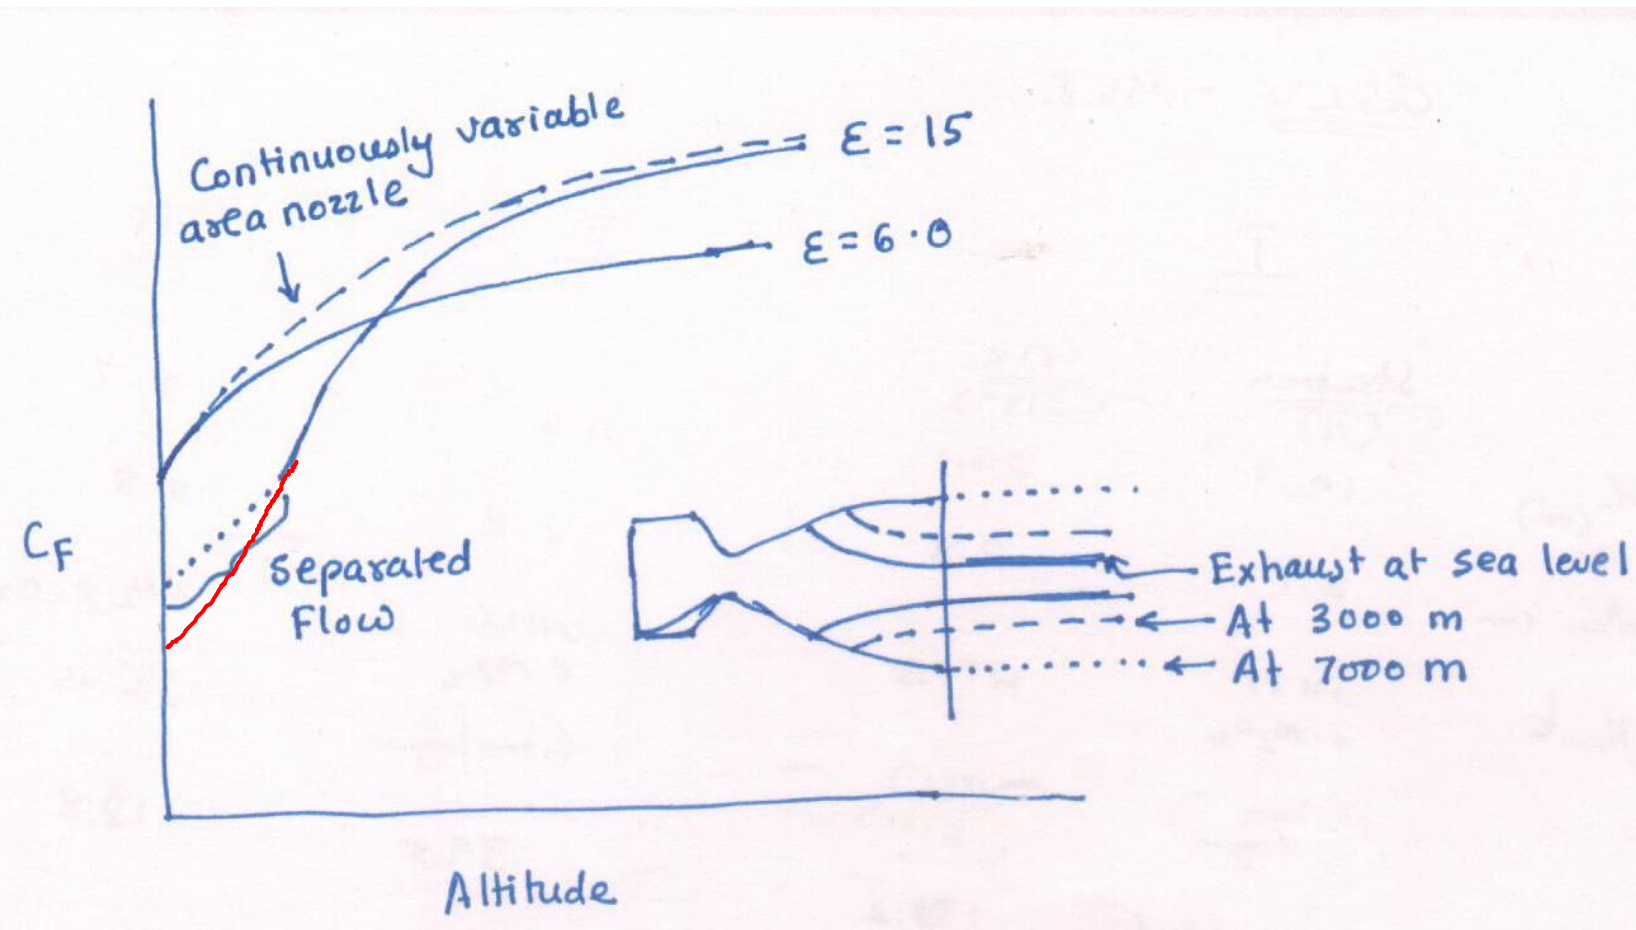 Continuously variable
area nozzle
ε = 15
ε = 6.0
CF
Separated
Flow
Exhaust at sea level
At 3000 m
At 7000 m
Altitude